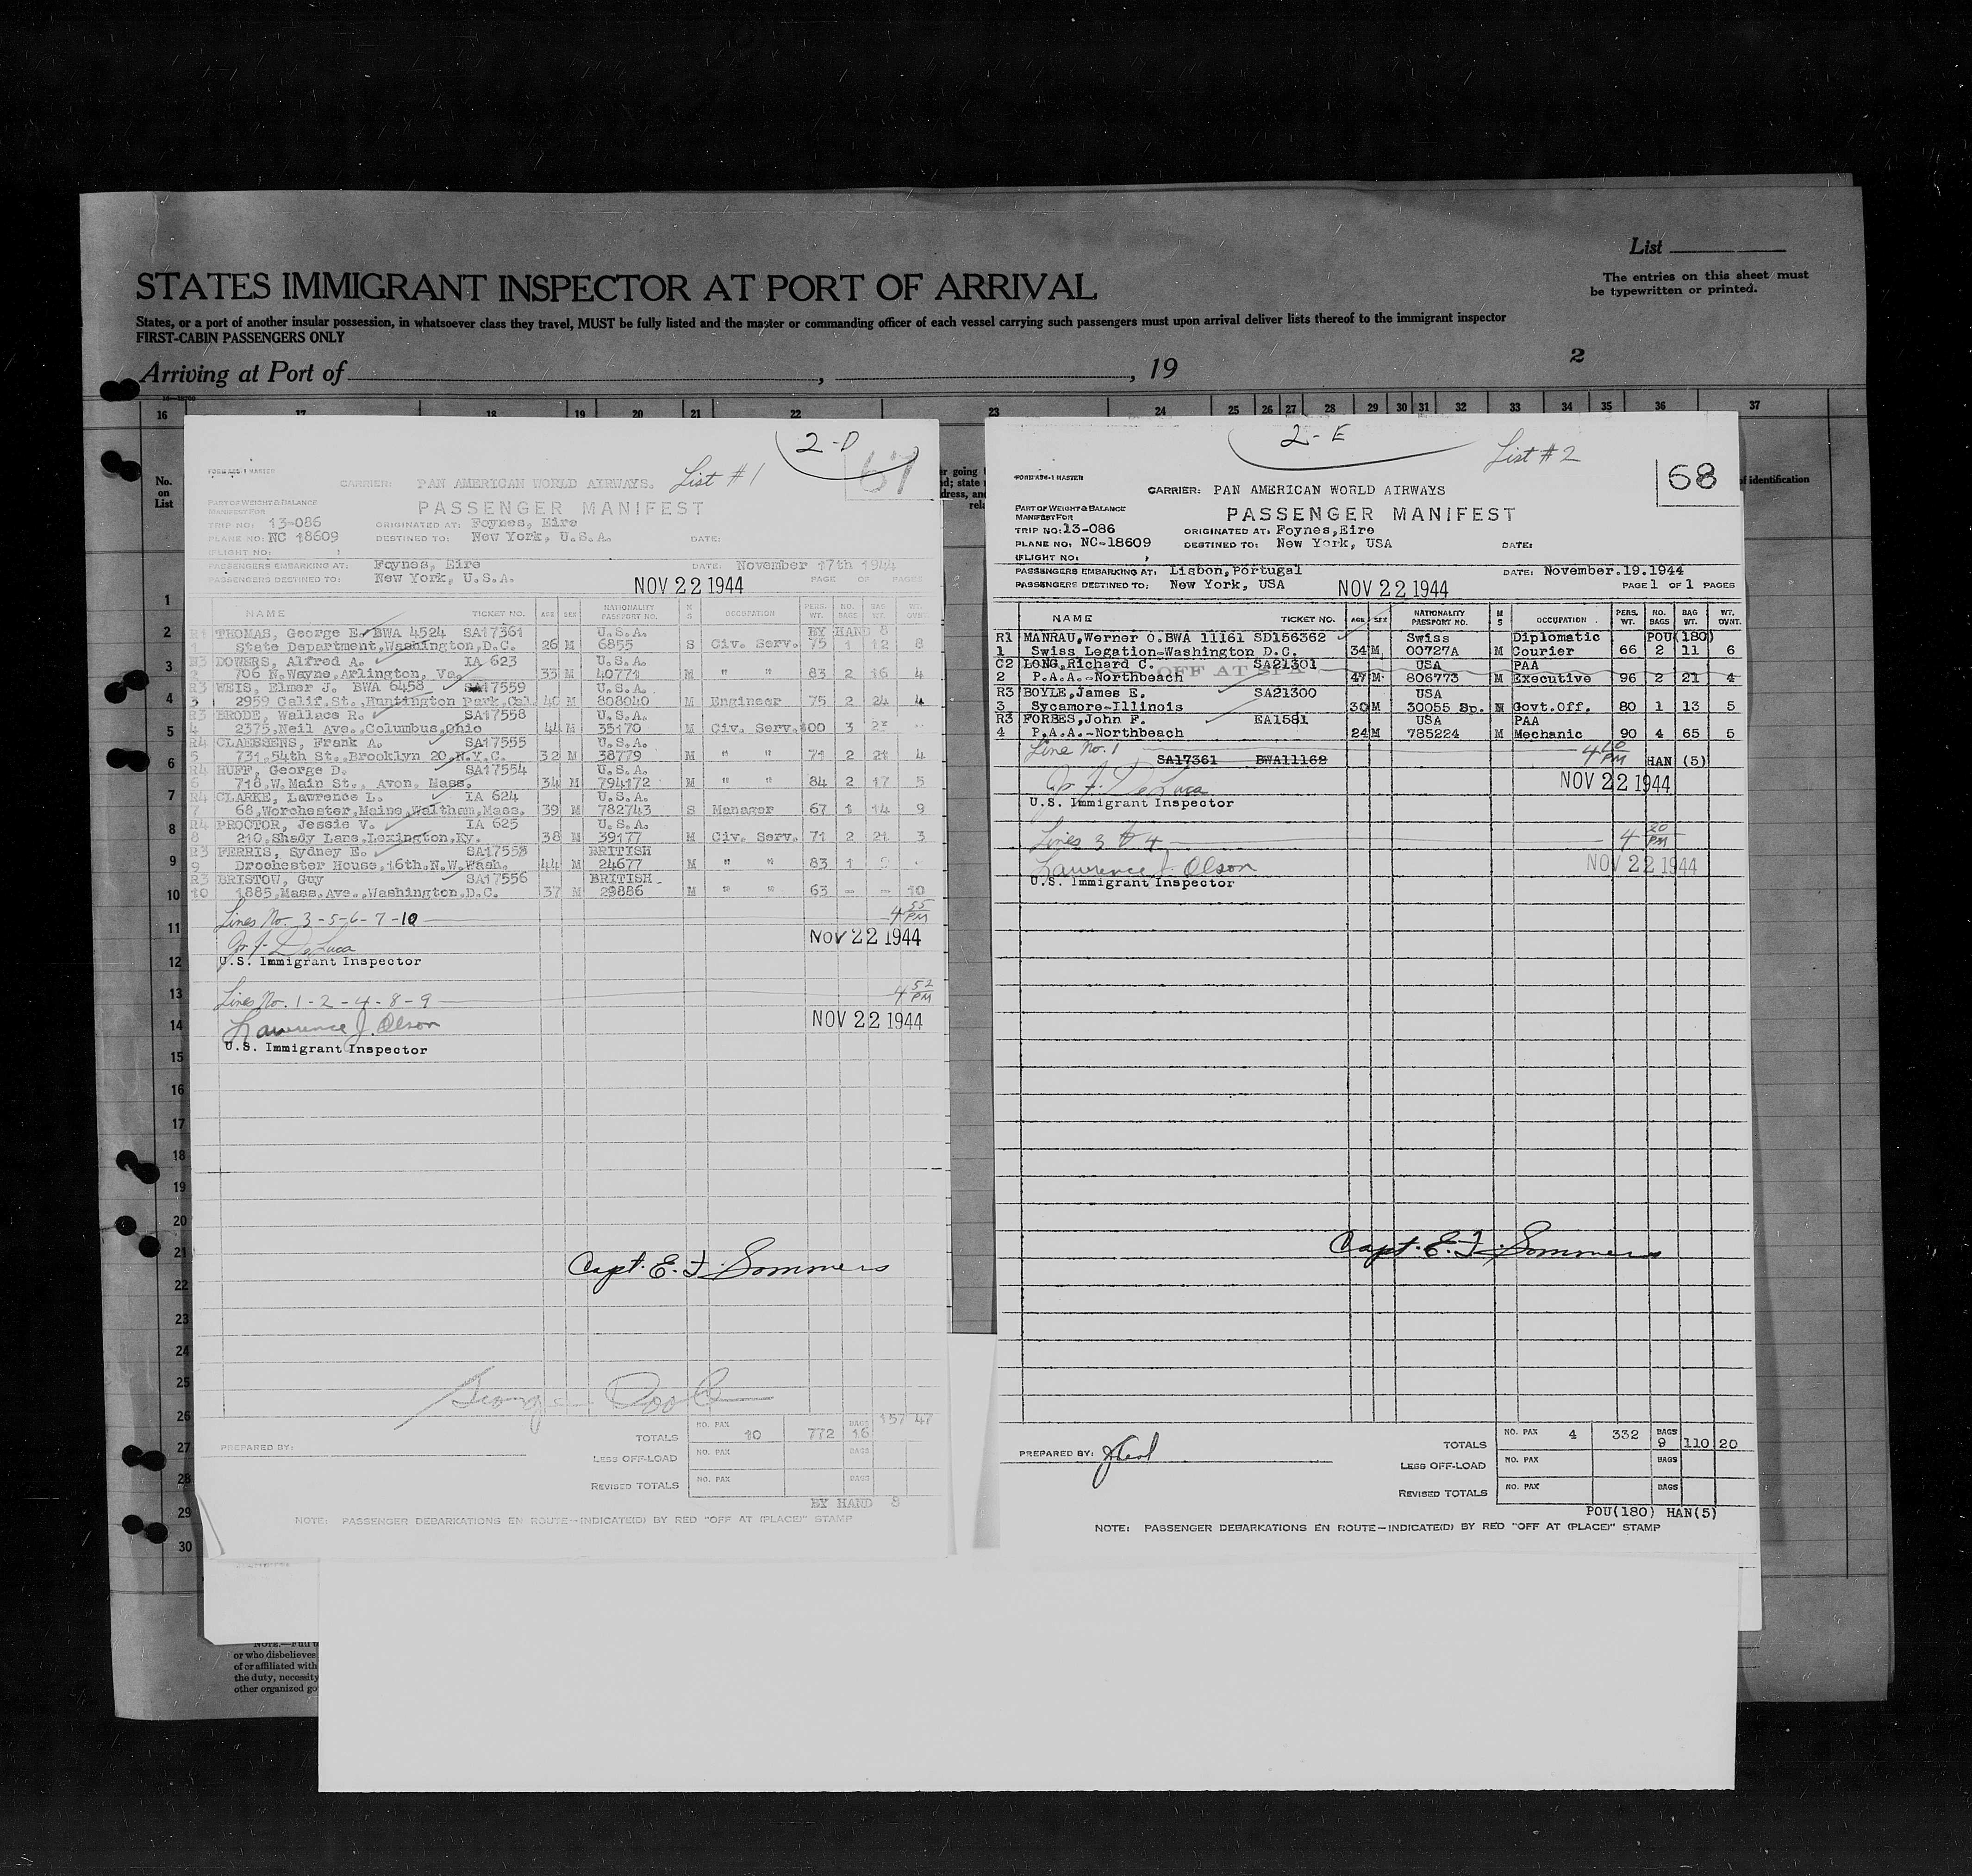 List
The entries on this sheet must
be typewritten or printed.
STATES IMMIGRANT INSPECTOR AT PORT OF ARRIVAL
States, or a port of another insular possession, in whatsoever class they travel, MUST be fully listed and the master or commanding officer of each vessel carrying such passengers must upon arrival deliver lists thereof to the immigrant inspector
FIRST-CABIN PASSENGERS ONLY
2
Arriving at Port of , , 19
16 17 18 19 20 21 22 23 24 25 26 27 28 29 30 31 32 33 34 35 36 37
No.
on
List
1
2
3
4
5
6
7
8
9
10
11
12
13
14
15
16
17
18
19
20
21
22
23
24
25
26
27
28
29
30
2-D
List #1
67
CARRIER: PAN AMERICAN WORLD AIRWAYS.
PART OF WEIGHT & BALANCE
MANIFEST FOR
PASSENGER MANIFEST
TRIP NO: 13-086 ORIGINATED AT: Foynes, Eire
PLANE NO: NC 18609 DESTINED TO: New York, U.S.A. DATE:
(FLIGHT NO: )
PASSENGERS EMBARKING AT: Foynes, Eire DATE: November 17th 1944
PASSENGERS DESTINED TO: New York, U.S.A. PAGE OF PAGES
NOV 22 1944
NAME TICKET NO. AGE SEX NATIONALITY PASSPORT NO. M S OCCUPATION PERS. WT. NO. BAGS BAG WT. WT. OVNT.
R1 THOMAS, George E. BWA 4524 SA17361 U.S.A. BY HAND 8
1 State Department, Washington, D.C. 26 M 6855 S Civ. Serv. 75 1 12 8
R3 DOWERS, Alfred A. IA 623 U.S.A.
2 706 N.Wayne, Arlington, Va. 33 M 40771 M " " 83 2 16 4
R3 WEIS, Elmer J. BWA 6458 SA17559 U.S.A.
3 2959 Calif.St., Huntington Park, Cal. 40 M 808040 M Engineer 75 2 24 4
R3 BRODE, Wallace R. SA17558 U.S.A.
4 2375, Neil Ave., Columbus, Ohio 44 M 35170 M Civ. Serv. 100 3
R4 CLAESSENS, Frank A. SA17555 U.S.A.
5 731, 54th St., Brooklyn 20, N.Y.C. 32 M 38779 M " " 71 2 21 4
R4 HUFF, George D. SA17554 U.S.A.
6 718, W.Main St., Avon, Mass. 34 M 794172 M " " 84 2 17 5
R4 CLARKE, Lawrence L. IA 624 U.S.A.
7 68, Worchester, Maine, Waltham, Mass. 39 M 782743 S Manager 67 1 14 9
R4 PROCTOR, Jessie V. IA 625 U.S.A.
8 210, Shady Lane, Lexington, Ky. 38 M 39177 M Civ. Serv. 71 2 21 3
R3 FERRIS, Sydney E. SA17553 BRITISH
9 Drochester House, 16th.N.W. Wash. 44 M 24677 M " " 83 1
R3 BRISTOW, Guy SA17556 BRITISH
10 1885, Mass.Ave., Washington, D.C. 37 M 29886 M " " 63 - - 10
Lines No. 3-5-6-7-10 4 55 PM
NOV 22 1944
U.S. Immigrant Inspector
Lines No. 1-2-4-8-9 4 52 PM
Lawrence J. Olson NOV 22 1944
U.S. Immigrant Inspector
Capt. E. F. Sommers
TOTALS NO. PAX 10 772 BAGS 16 157 47
PREPARED BY: LESS OFF-LOAD NO. PAX BAGS
REVISED TOTALS NO. PAX BAGS
BY HAND 8
NOTE: PASSENGER DEBARKATIONS EN ROUTE—INDICATE(D) BY RED "OFF AT (PLACE)" STAMP
2-E
List #2
68
FORM A&S-1 MASTER
CARRIER: PAN AMERICAN WORLD AIRWAYS
PART OF WEIGHT & BALANCE
MANIFEST FOR
PASSENGER MANIFEST
TRIP NO: 13-086 ORIGINATED AT: Foynes, Eire
PLANE NO: NC-18609 DESTINED TO: New York, USA DATE:
(FLIGHT NO: )
PASSENGERS EMBARKING AT: Lisbon, Portugal DATE: November.19.1944
PASSENGERS DESTINED TO: New York, USA PAGE 1 OF 1 PAGES
NOV 22 1944
NAME TICKET NO. AGE SEX NATIONALITY PASSPORT NO. M S OCCUPATION PERS. WT. NO. BAGS BAG WT. WT. OVNT.
R1 MANRAU, Werner O. BWA 11161 SD156362 Swiss Diplomatic POU(180)
1 Swiss Legation-Washington D.C. 34 M 00727A M Courier 66 2 11 6
C2 LONG, Richard C. OFF AT SA21301 USA PAA
2 P.A.A.-Northbeach 47 M 806773 M Executive 96 2 21 4
R3 BOYLE, James E. SA21300 USA
3 Sycamore-Illinois 30 M 30055 Sp. M Govt.Off. 80 1 13 5
R3 FORBES, John F. EA1581 USA PAA
4 P.A.A.-Northbeach 24 M 785224 M Mechanic 90 4 65 5
Line No. 1 4 PM
SA17361 BWA11168 HAN (5)
NOV 22 1944
U.S. Immigrant Inspector
Lines 3 & 4 4 20 PM
Lawrence J. Olson NOV 22 1944
U.S. Immigrant Inspector
Capt. E. F. Sommers
TOTALS NO. PAX 4 332 BAGS 9 110 20
PREPARED BY: LESS OFF-LOAD NO. PAX BAGS
REVISED TOTALS NO. PAX BAGS
POU(180) HAN(5)
NOTE: PASSENGER DEBARKATIONS EN ROUTE—INDICATE(D) BY RED "OFF AT (PLACE)" STAMP
of identification
or who disbelieves
of or affiliated with
the duty, necessity
other organized go